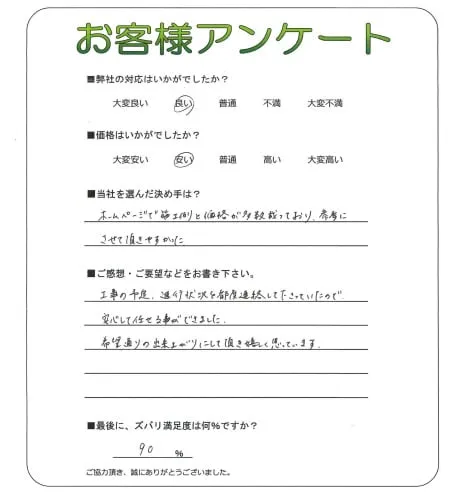 お客様アンケート
■弊社の対応はいかがでしたか？
大変良い 良い 普通 不満 大変不満
■価格はいかがでしたか？
大変安い 安い 普通 高い 大変高い
■当社を選んだ決め手は？
ホームページで施工例と価格が多数載っており、参考に
させて頂きやすかった
■ご感想・ご要望などをお書き下さい。
工事の予定、進行状況を都度連絡して下さっていたので
安心して任せる事ができました。
希望通りの出来上がりにして頂き嬉しく思っています。
■最後に、ズバリ満足度は何%ですか？
90 %
ご協力頂き、誠にありがとうございました。